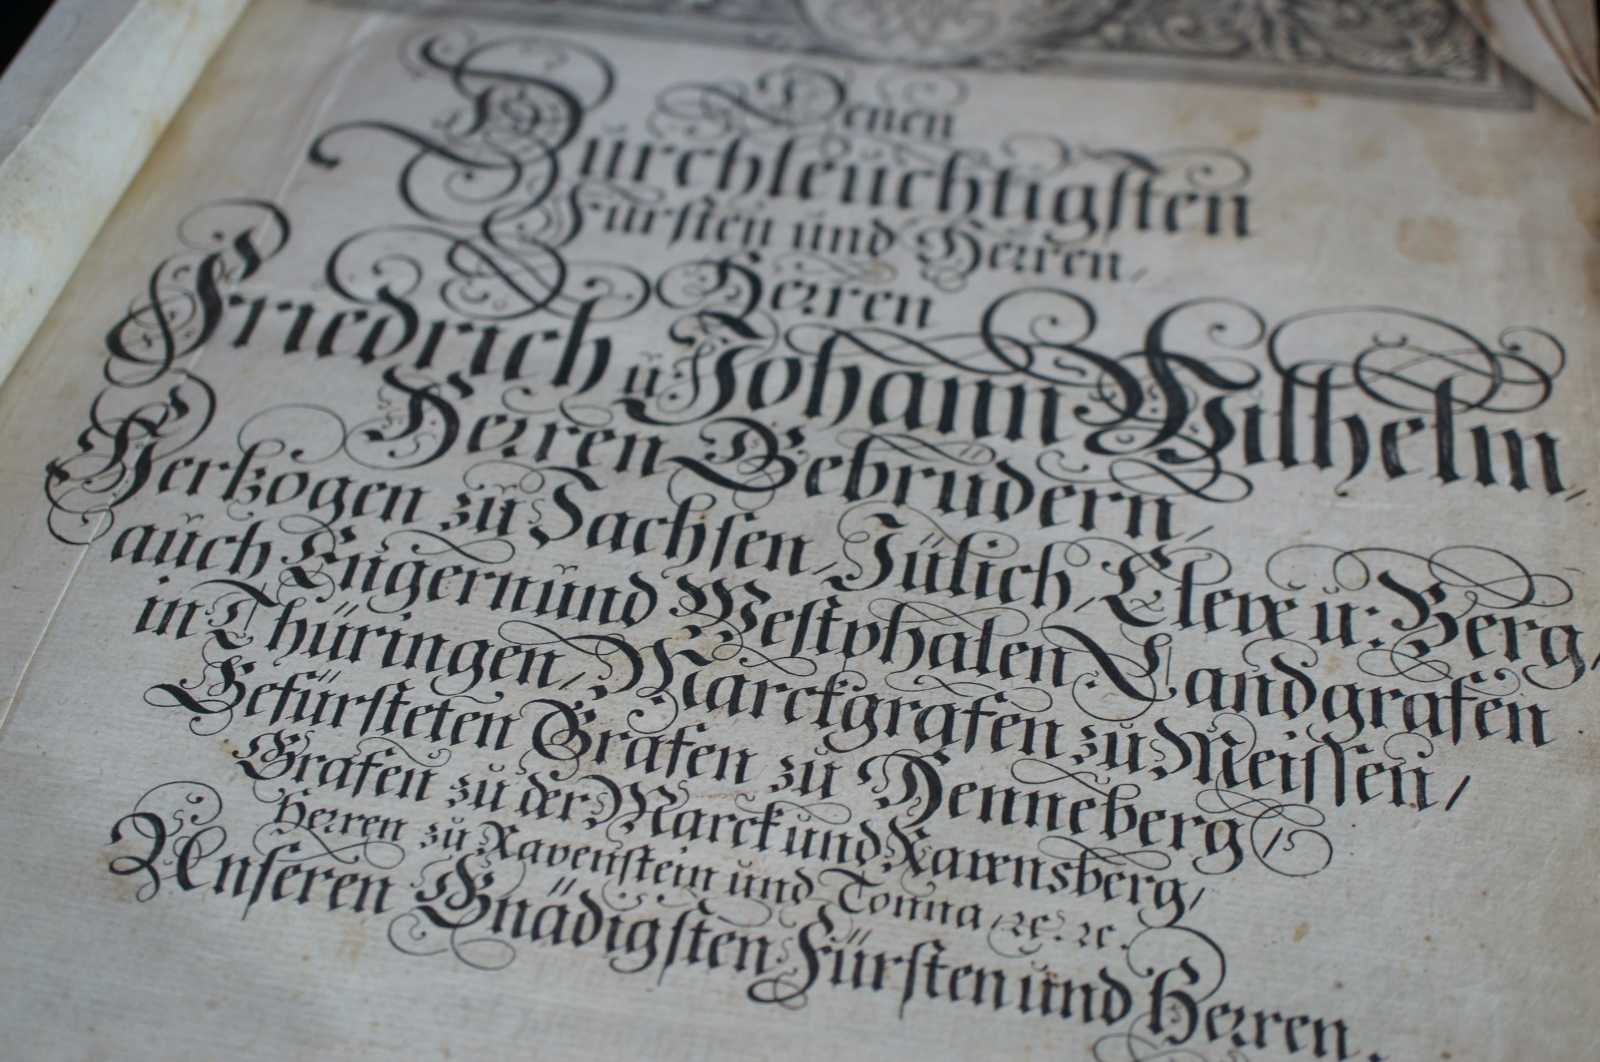 Denen
Durchleuchtigsten
Fürsten und Herren,
Herren
Friedrich u Johann Wilhelm,
Herren Gebrüdern,
Hertzogen zu Sachsen, Jülich, Cleve u: Berg,
auch Engern und Westphalen Landgrafen
in Thüringen, Marckgrafen zu Meissen,
Gefürsteten Grafen zu Henneberg,
Grafen zu der Marck und Ravensberg,
Herren zu Ravenstein und Tonna, ꝛc. ꝛc.
Unseren Gnädigsten Fürsten und Herren.